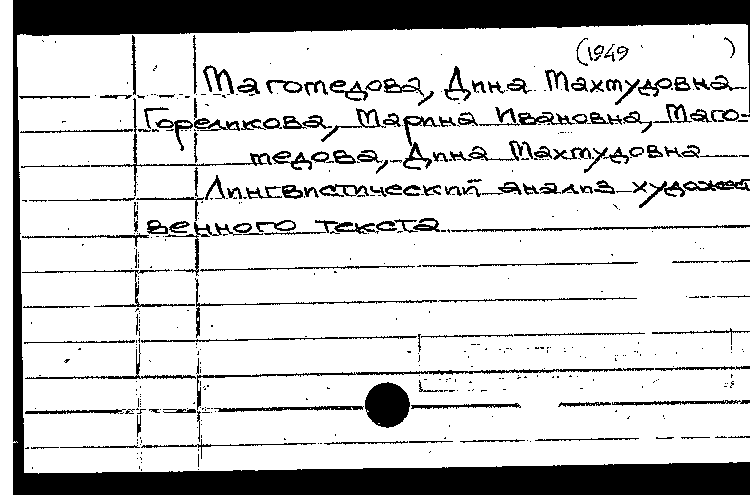 (1949 )
Магомедова, Дина Махмудовна
Гореликова, Марина Ивановна, Маго-
медова, Дина Махмудовна
Лингвистический анализ художест
венного текста